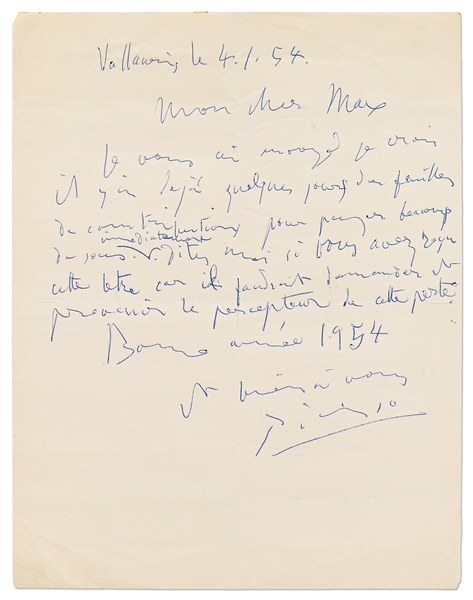 Vallauris le 4.1.54.
Mon cher Max
Je vous ai envoyé je crois
il y a dejà quelques jours des feuilles
de contributions pour payer beaucoup
immediatement
de sous. dites moi si vous avez reçu
cette letre car il faudrait demander et
prevenir le percepteur de cette perte.
Bonne année 1954
et bien à vous
Picasso